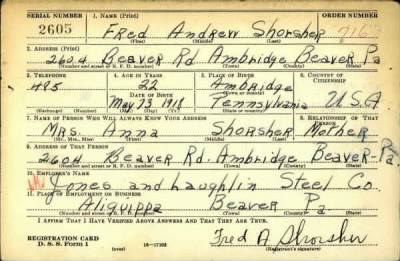 SERIAL NUMBER 1. NAME (Print) ORDER NUMBER
2605 FRed Andrew Shorsher
(First) (Middle) (Last)
2. ADDRESS (Print)
2604 Beaver Rd Ambridge Beaver Pa
(Number and street or R. F. D. number) (Town) (County) (State)
3. TELEPHONE 4. AGE IN YEARS 5. PLACE OF BIRTH 6. COUNTRY OF CITIZENSHIP
495 22 Ambridge
DATE OF BIRTH (Town or county)
May 23 1918 Pennsylvania U.S.A
(Exchange) (Number) (Mo.) (Day) (Yr.) (State or country)
7. NAME OF PERSON WHO WILL ALWAYS KNOW YOUR ADDRESS 8. RELATIONSHIP OF THAT PERSON
MRS. Anna Shorsher Mother
(Mr., Mrs., Miss) (First) (Middle) (Last)
9. ADDRESS OF THAT PERSON
2604 Beaver Rd. Ambridge Beaver-Pa.
(Number and street or R. F. D. number) (Town) (County) (State)
10. EMPLOYER'S NAME
Jones and Laughlin Steel Co.
11. PLACE OF EMPLOYMENT OR BUSINESS
Aliquippa Beaver Pa
(Number and street or R. F. D. number) (Town) (County) (State)
I AFFIRM THAT I HAVE VERIFIED ABOVE ANSWERS AND THAT THEY ARE TRUE.
REGISTRATION CARD
D. S. S. Form 1 (over) 16—17105 Fred A Shorsher
(Registrant's signature)